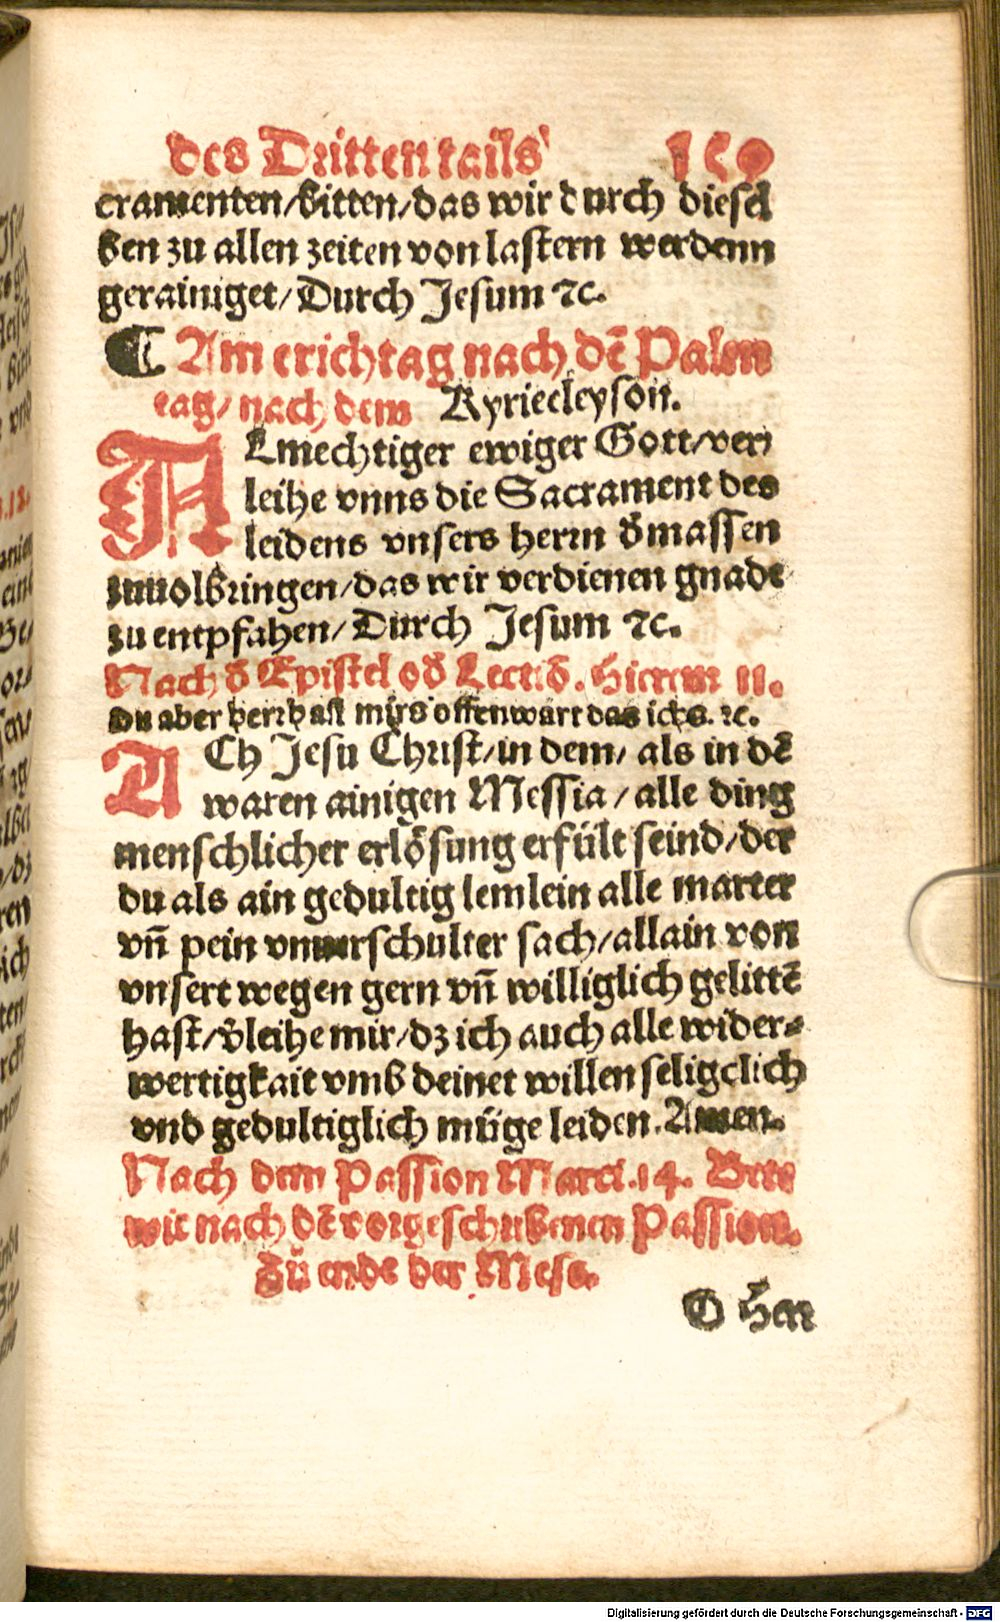 des Dritten tails 150
cramenten/bitten/das wir durch diesel
ben zu allen zeiten von lastern werdenn
gerainiget/Durch Jesum ꝛc.
¶ Am erichtag nach dē Palm
tag/nach dem Kyrieeleyson.
ALmechtiger ewiger Gott/ver
leihe vnns die Sacrament des
leidens vnsers herrn d̄massen
zuuolbringen/das wir verdienen gnade
zu entpfahen/Durch Jesum ꝛc.
Nach d̄ Epistel od̄ Lectiō. Hierem 11.
Du aber herr hast mirs offenwart das ichs. ꝛc.
ACh Jesu Christ/in dem/als in dē
waren ainigen Messia/alle ding
menschlicher erlösung erfült seind/der
du als ain gedultig lemlein alle marter
vn̄ pein vnuerschulter sach/allain von
vnsert wegen gern vn̄ williglich gelittē
hast/v̄leihe mir/dz ich auch alle wider⸗
wertigkait vmb deinet willen seligclich
vnd gedultiglich müge leiden. Amen.
Nach dem Passion Marci. 14. Bete
wie nach dē vorgeschribenen Passion.
Zů ende der Mess.
O Herr
Digitalisierung gefördert durch die Deutsche Forschungsgemeinschaft - DFG